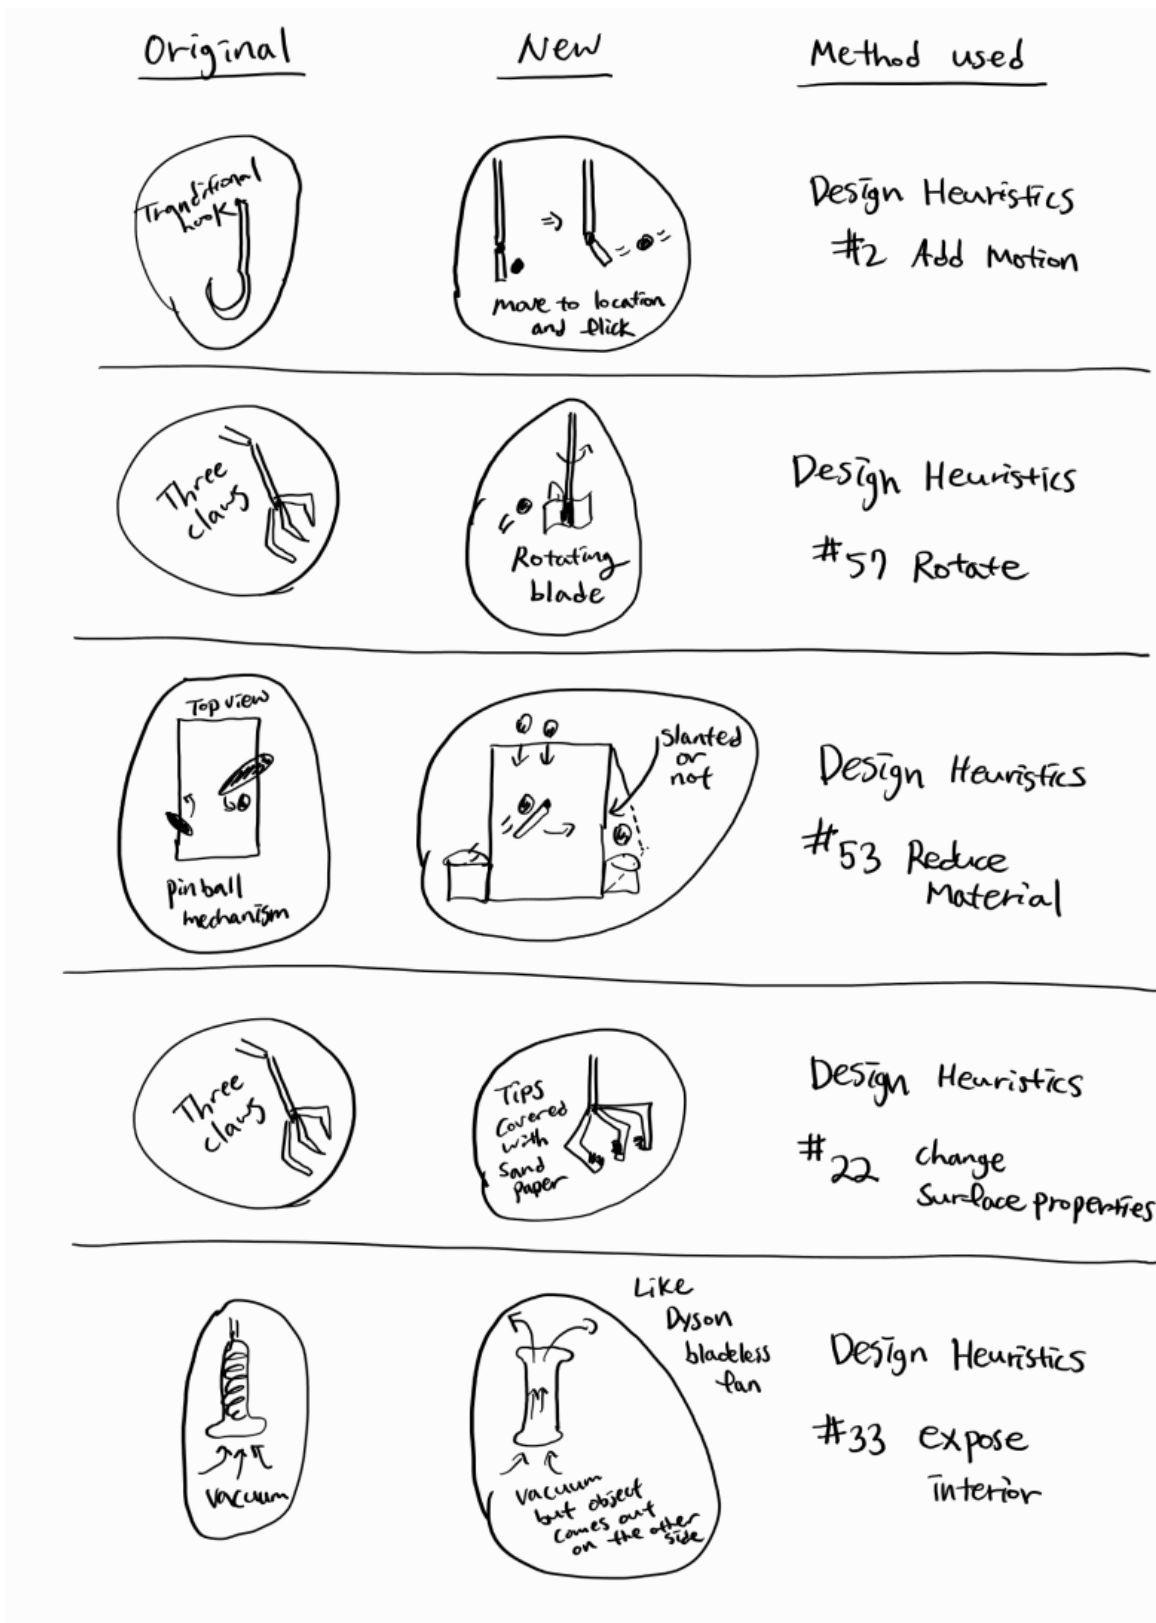 Original
New
Method used
Tranditional
hook
move to location
and flick
Design Heuristics
#2 Add Motion
Three
claws
Rotating
blade
Design Heuristics
#57 Rotate
Top view
pinball
mechanism
slanted
or
not
Design Heuristics
#53 Reduce
Material
Three
claws
Tips
covered
with
sand
paper
Design Heuristics
#22 change
surface properties
vacuum
Like
Dyson
bladeless
fan
vacuum
but object
comes out
on the other
side
Design Heuristics
#33 expose
interior